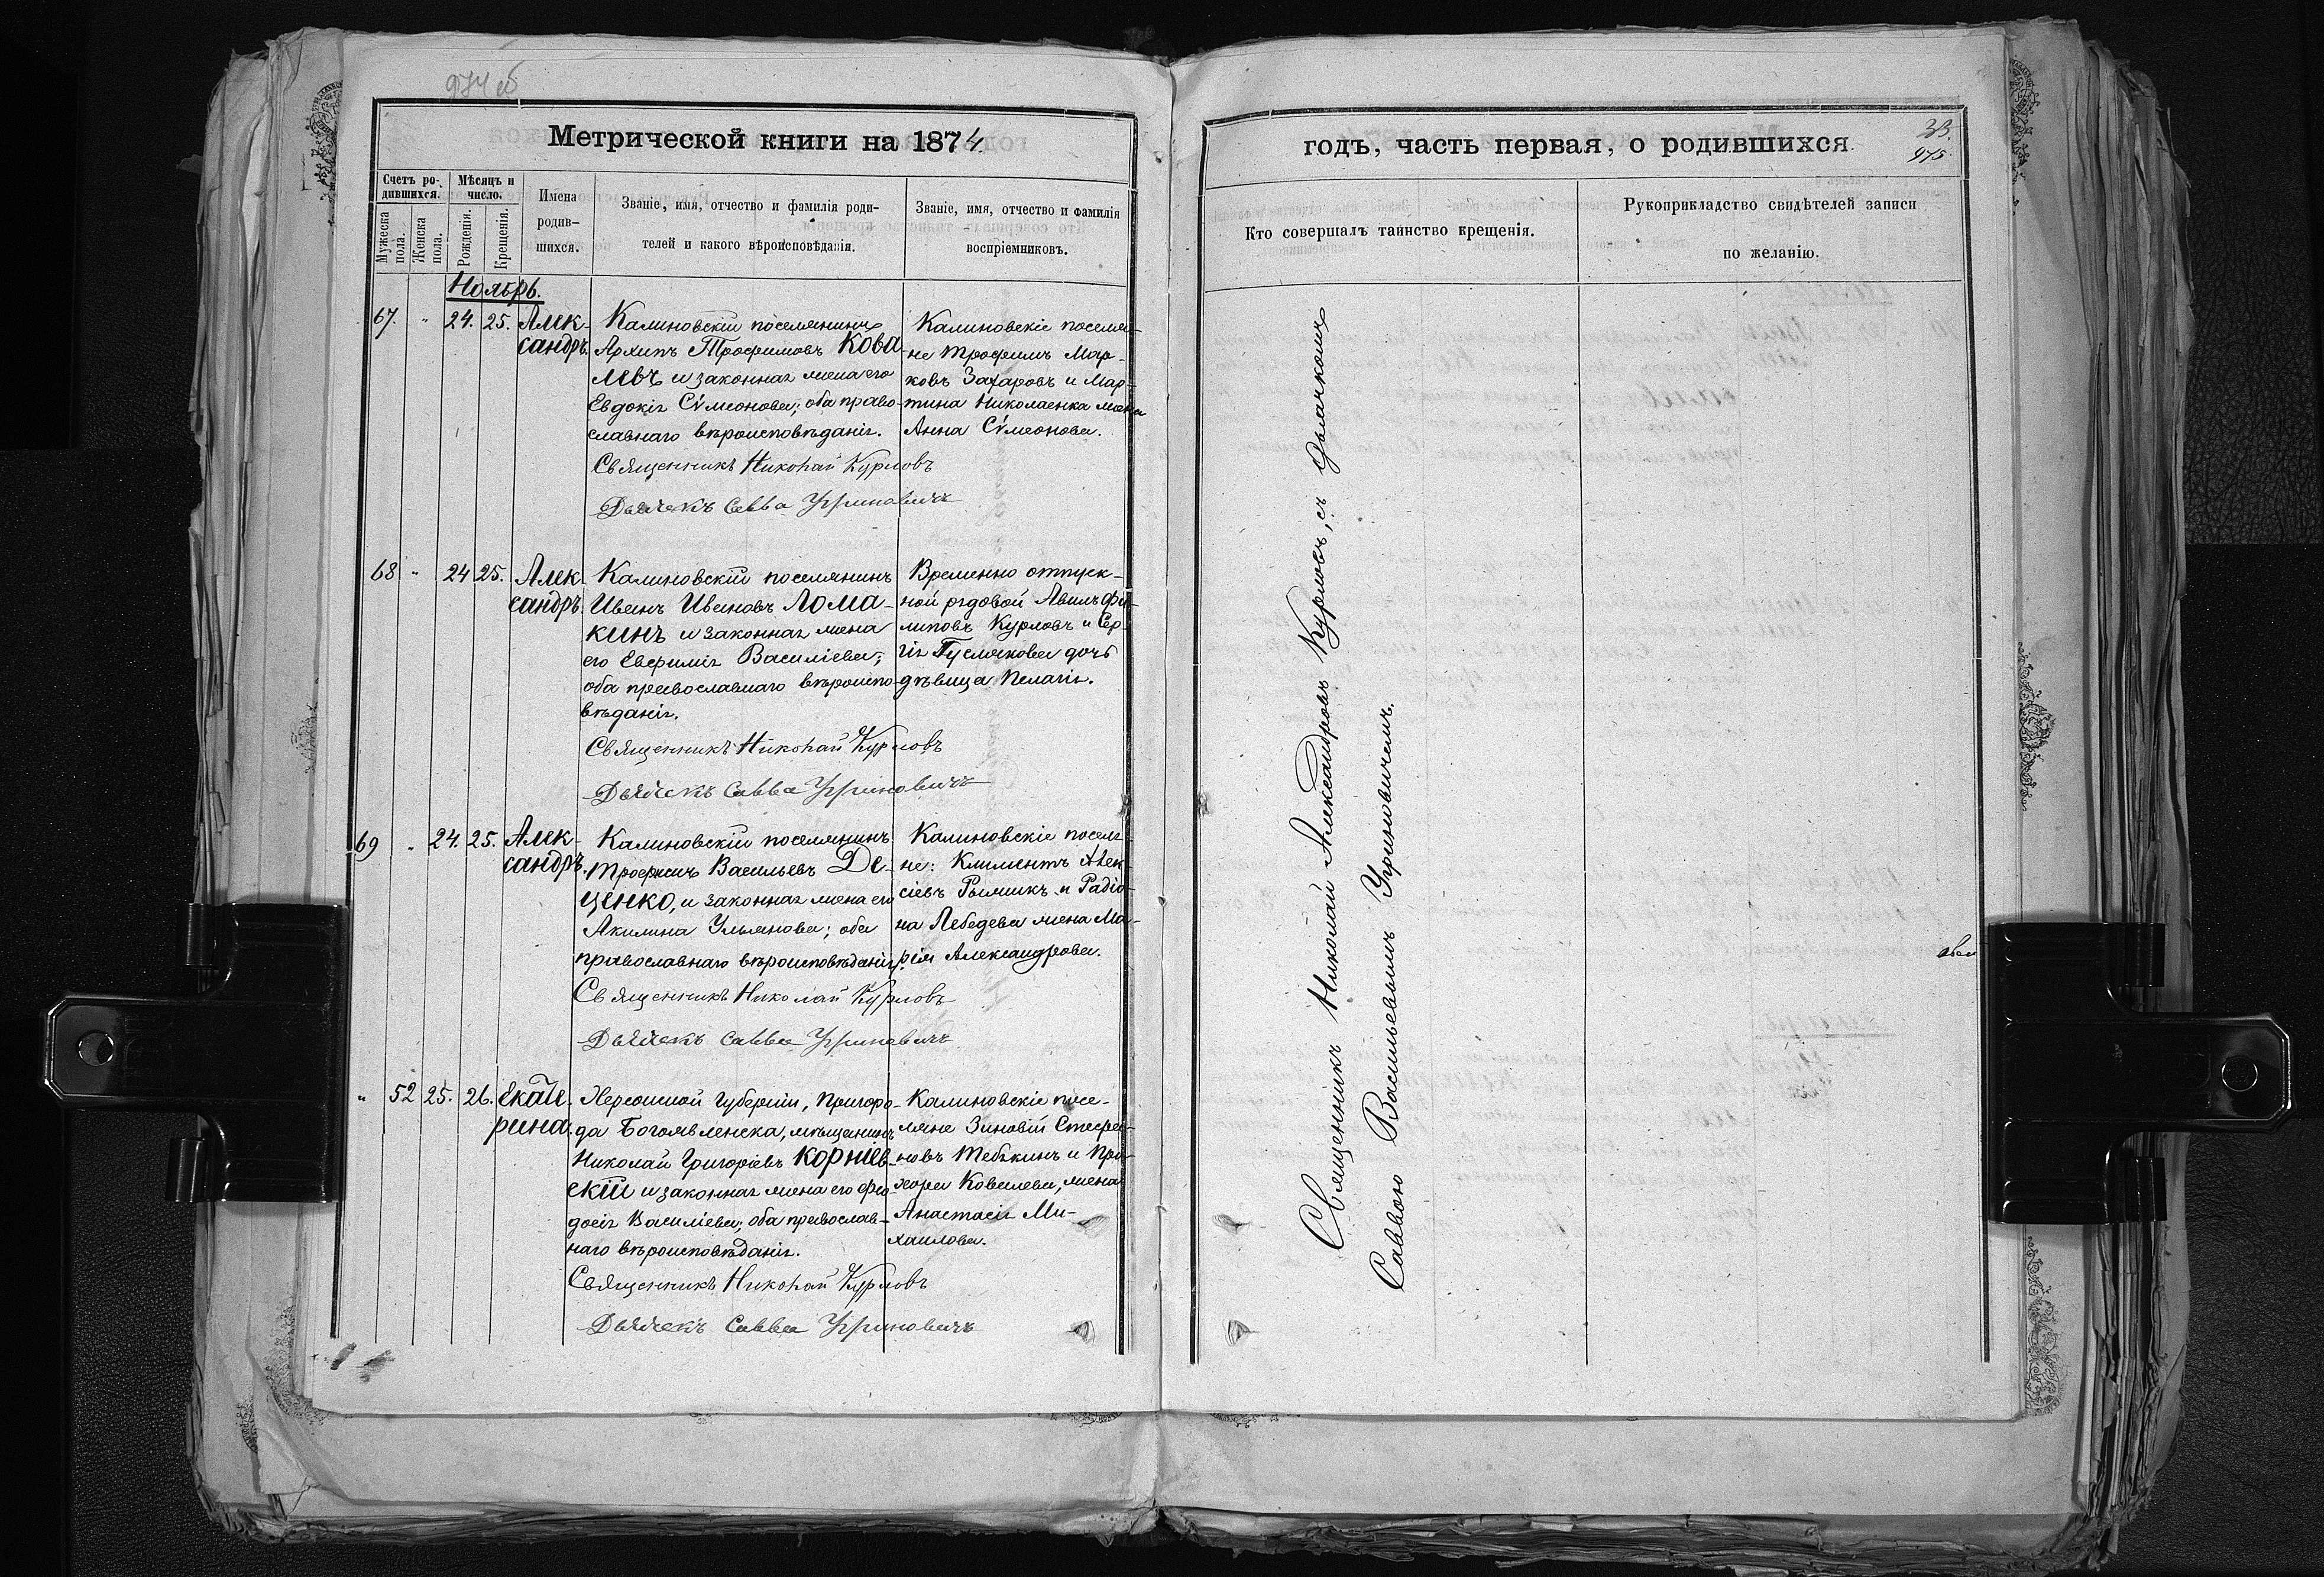 974 об
Метрической книги на 1874.
Счетъ ро-
дившихся.
Мѣсяцъ и
число.
Мужеска
пола.
Женска
пола.
Рожденія.
Крещенія.
Имена
родив-
шихся.
Званіе, имя, отчество и фамилія роди-
телей и какого вѣроисповѣданія.
Званіе, имя, отчество и фамилія
воспріемниковъ.
Ноябрь.
67. " 24. 25. Алек-
сандръ.
Калиновскій поселянинъ
Архипъ Трофимовъ Кова-
левъ и законная жена его
Евдокія Сѵмеонова; оба право-
славнаго вѣроисповѣданія.
Священникъ Николай Курловъ
Дьячекъ Савва Уриновичъ
Калиновскіе поселя-
не Трофимъ Мар-
ковъ Захаровъ и Мар-
тина Николаенка жена
Анна Сѵмеонова.
68 " 24 25. Алек-
сандръ.
Калиновскій поселянинъ
Иванъ Ивановъ Лома-
кинъ и законная жена
его Евфимія Василіева;
оба православнаго вѣроиспо-
вѣданія.
Священникъ Николай Курловъ
Дьячекъ Савва Уриновичъ
Временно отпуск-
ной рядовой Авилъ Фи-
липовъ Курловъ и Сер-
гія Гуслякова дочь
дѣвица Пелагія.
69 " 24. 25. Алек-
сандръ.
Калиновскій поселянинъ
Трофимъ Васильевъ Де-
ценко, и законная жена его
Акилина Ульянова; оба
православнаго вѣроисповѣданія.
Священникъ Николай Курловъ
Дьячекъ Савва Уриновичъ
Калиновскіе поселя-
не: Климентъ Алек-
сіевъ Рымшикъ и Радіо-
на Лебедева жена Ма-
рія Александрова.
" 52 25. 26. Екате-
рина.
Херсонской Губерніи, Пригоро-
да Богоявленска, мѣщанинъ
Николай Григоріевъ Корніев-
скій и законная жена его Фео-
досія Василіева; оба православ-
наго вѣроисповѣданія.
Священникъ Николай Курловъ
Дьячекъ Савва Уриновичъ
Калиновскіе посе-
ляне Зиновій Стефа-
новъ Тебякинъ и Про-
хора Ковалева, жена
Анастасія Ми-
хаилова.
годъ, часть первая, о родившихся.
33.
975.
Кто совершалъ таинство крещенія.
Рукоприкладство свидѣтелей записи
по желанію.
Священникъ Николай Александровъ Курловъ, съ дьячкомъ
Саввою Васильевымъ Уриновичемъ.